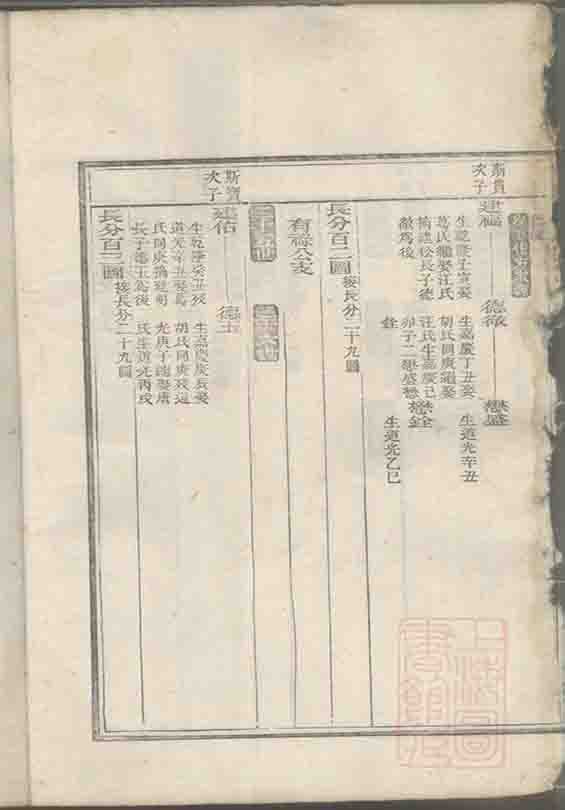 斯貫次子
建福
生乾隆壬寅娶
葛氏繼娶汪氏
德徵
生嘉慶丁丑娶
胡氏同庚繼娶
汪氏生嘉慶己
卯子二懋盛懋
銓
懋盛
生道光辛丑
懋銓
生道光乙巳
長分百二圖 接長分二十九圖
有祿公支
斯寶次子
建佑
生乾隆癸丑歿
道光辛丑娶葛
長子德玉為後
德玉
生嘉慶庚辰娶
胡氏同庚歿道
光庚子繼娶唐
氏生道光丙戌
長分百三圖 接長分二十九圖
上海圖書館藏